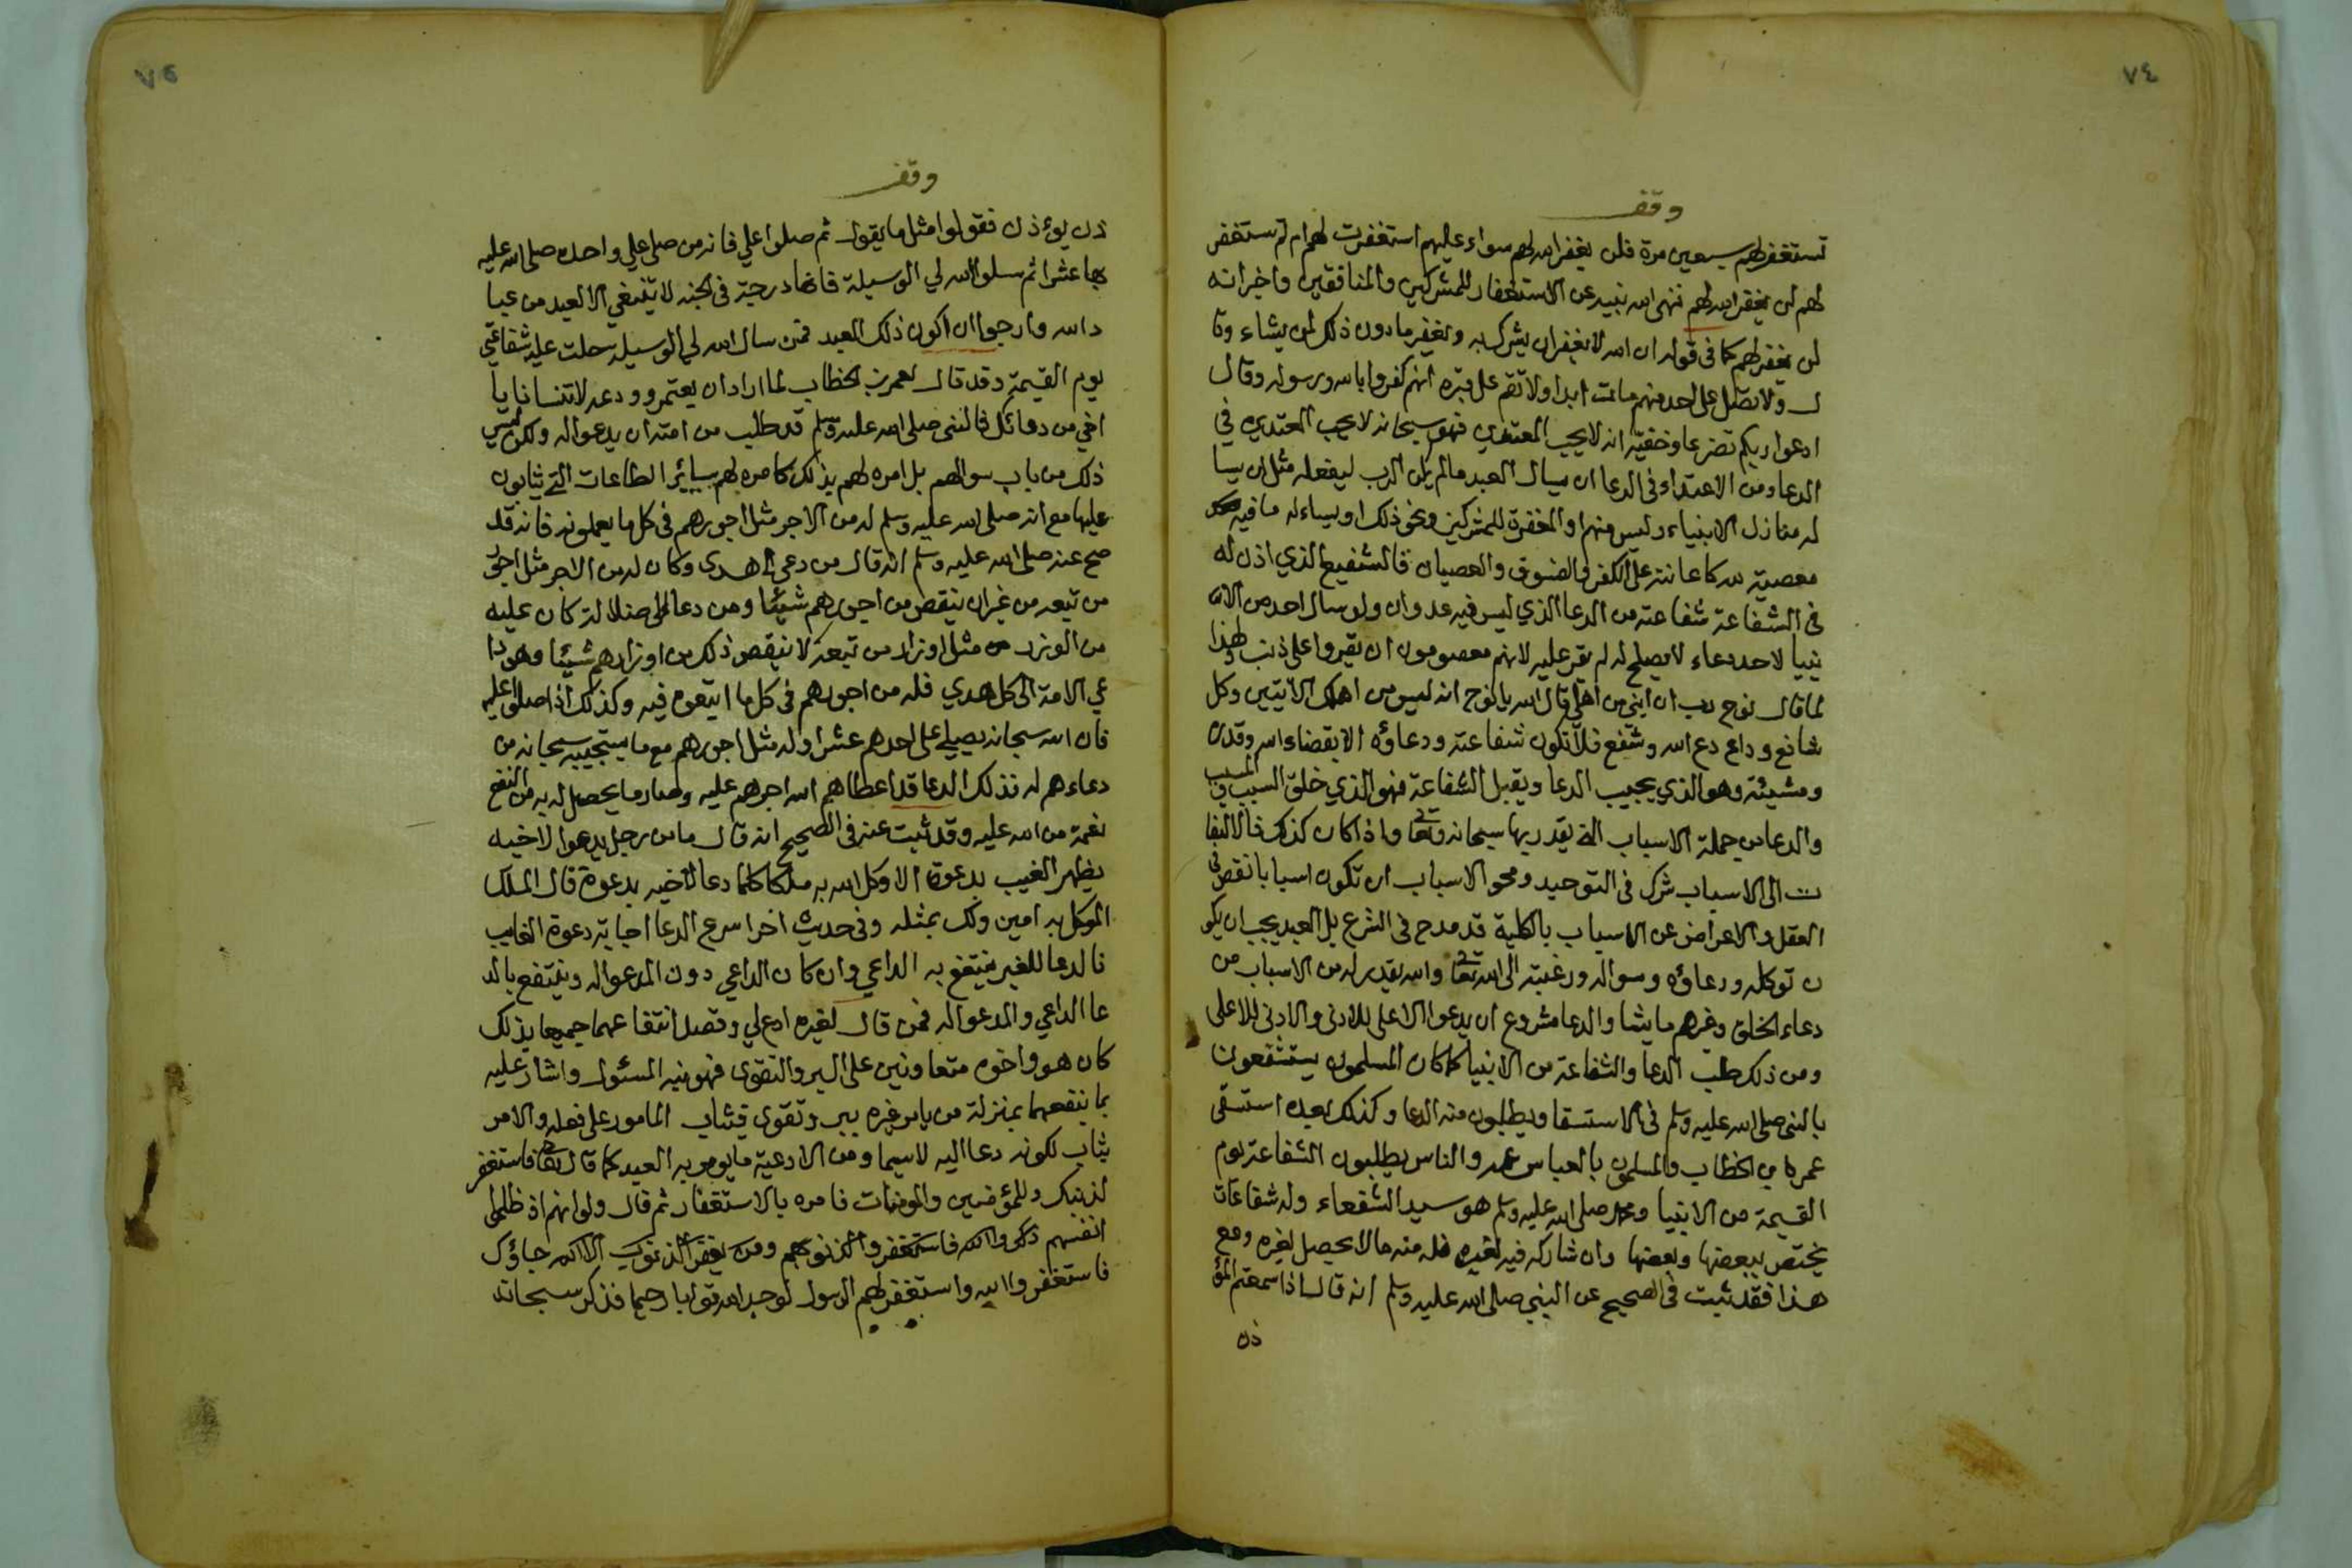 ٧٤
وقف
تستغفر لهم سبعين مرة فلن يغفر الله لهم سواء عليهم استغفرت لهم ام لم تستغفر
لهم لن يغفر الله لهم فنهى الله نبيه عن الاستغفار للمشركين والمنافقين واخبر انه
لن يغفر لهم كما في قوله ان الله لا يغفر ان يشرك به ويغفر ما دون ذلك لمن يشاء وقا
ل ولا تصل على احد منهم مات ابدا ولا تقم على قبره انهم كفروا بالله ورسوله وقال
ادعوا ربكم تضرعا وخفية انه لا يحب المعتدين فهو سبحانه لا يحب المعتدين في
الدعا ومن الاعتداء في الدعا ان يسال العبد مالم يكن الرب ليفعله مثل ان يسا
له منازل الانبياء وليس منهم او المغفرة للمشركين ونحو ذلك او يساءله ما فيه
معصية لله كاعانته على الكفر والفسوق والعصيان فالشفيع الذي اذن له
في الشفاعة شفاعته من الدعا الذي ليس فيه عدوان ولو سال احد من الان
بيا لاحد دعاء لا يصلح له لم يقر عليه لانهم معصومون ان يقروا على ذنب ولهذا
لما قال نوح رب ان ابني من اهلي قال الله يا نوح انه ليس من اهلك الايتين وكل
شافع وداع دعا الله وشفع فلا تكون شفاعته ودعاؤه الا بقضاء الله وقدره
ومشيئته وهو الذي يجيب الدعا ويقبل الشفاعة فهو الذي خلق السبب والمسبب
والدعا من جملة الاسباب التي يقدر بها سبحانه وتعا واذا كان كذلك فالالتفا
ت الى الاسباب شرك في التوحيد ومحو الاسباب ان تكون اسبابا نقص في
العقل والاعراض عن الاسباب بالكلية قدمدح في الشرع بل العبد يجب ان يكو
ن توكله ودعاؤه وسواله ورغبته الى الله تعا والله يقدر له من الاسباب من
دعاء الخلق وغيرهم ما يشا والدعا مشروع ان يدعوا الاعلى للادنى والادنى للاعلى
ومن ذلك طلب الدعا والشفاعة من الانبيا كما كان المسلمون يستشفعون
بالنبي صلى الله عليه وسلم في الاستسقا ويطلبون منه الدعا وكذلك بعده استسقى
عمر بن الخطاب والمسلمون بالعباس عمه والناس يطلبون الشفاعة يوم
القيمة من الانبيا ومحمد صلى الله عليه وسلم هو سيد الشفعاء وله شفاعات
يختص ببعضها وبعضها وان شاركه فيه لغيره فله منه ما لا يحصل لغيره ومع
هذا فقد ثبت في الصحيح عن النبي صلى الله عليه وسلم انه قال اذا سمعتم المؤ
ذن
٧٥
وقف
ذن يوءذن فقولوا مثل ما يقول ثم صلوا علي فانه من صلى علي واحدة صلى الله عليه
بها عشرا ثم سلوا الله لي الوسيلة فانها درجة في الجنة لا تنبغي الا لعبد من عبا
د الله وارجوا ان اكون ذلك العبد فمن سال الله لي الوسيله حلت عليه شفاعتي
يوم القيمة وقد قال لعمر بن الخطاب لما اراد ان يعتمر وودعه لا تنسانا يا
اخي من دعائك فالنبي صلى الله عليه وسلم قد طلب من امته ان يدعوا له ولكن ليس
ذلك من باب سوالهم بل امره لهم بذلك كامره لهم بسائر الطاعات التي يثابون
عليها مع انه صلى الله عليه وسلم له من الاجر مثل اجورهم في كل ما يعملونه فانه قد
صح عنه صلى الله عليه وسلم انه قال من دعى الى هدى وكان له من الاجر مثل اجور
من تبعه من غير ان ينقص من اجورهم شيئا ومن دعا الى ضلالة كان عليه
من الوزر مثل اوزار من تبعه لا ينقص ذلك من اوزارهم شيئا وهو دا
عي الامة الى كل هدي فله من اجورهم في كل ما اتبعوه فيه وكذلك اذا صلوا عليه
فان الله سبحانه يصلي على احدهم عشرا وله مثل اجورهم مع ما يستجيبه سبحانه من
دعاءهم له فذلك الدعا قد اعطاهم الله اجرهم عليه وصار ما يحصل له به من النفع
نعمة من الله عليه وقد ثبت عنه في الصحيح انه قال ما من رجل يدعوا لاخيه
بظهر الغيب بدعوة الا وكل الله به ملكا كلما دعا لاخيه بدعوة قال الملك
الموكل به امين ولك بمثله وفي حديث اخر اسرع الدعا اجابة دعوة الغايب
فالدعا للغير ينتفع به الداعي وان كان الداعي دون المدعوا له وينتفع بالد
عا الداعي والمدعوا له فمن قال لغيره ادع لي وقصد انتفاعهما جميعا بذلك
كان هو واخوه متعاونين على البر والتقوى فهو نبه المسئول واشار عليه
بما ينفعهما بمنزلة من يامر غيره ببر وتقوى فيثاب المامور على فعله والامر
يثاب لكونه دعا اليه لاسيما ومن الادعية ما يومر به العبد كما قال تعا فاستغفر
لذنبك وللمؤمنين والمومنات فامره بالاستغفار ثم قال ولو انهم اذ ظلموا
انفسهم ذكروا الله فاستغفروا لذنوبهم ومن يغفر الذنوب الا الله جاؤك
فاستغفروا الله واستغفر لهم الرسول لوجدوا الله توابا رحيما فذكر سبحانه